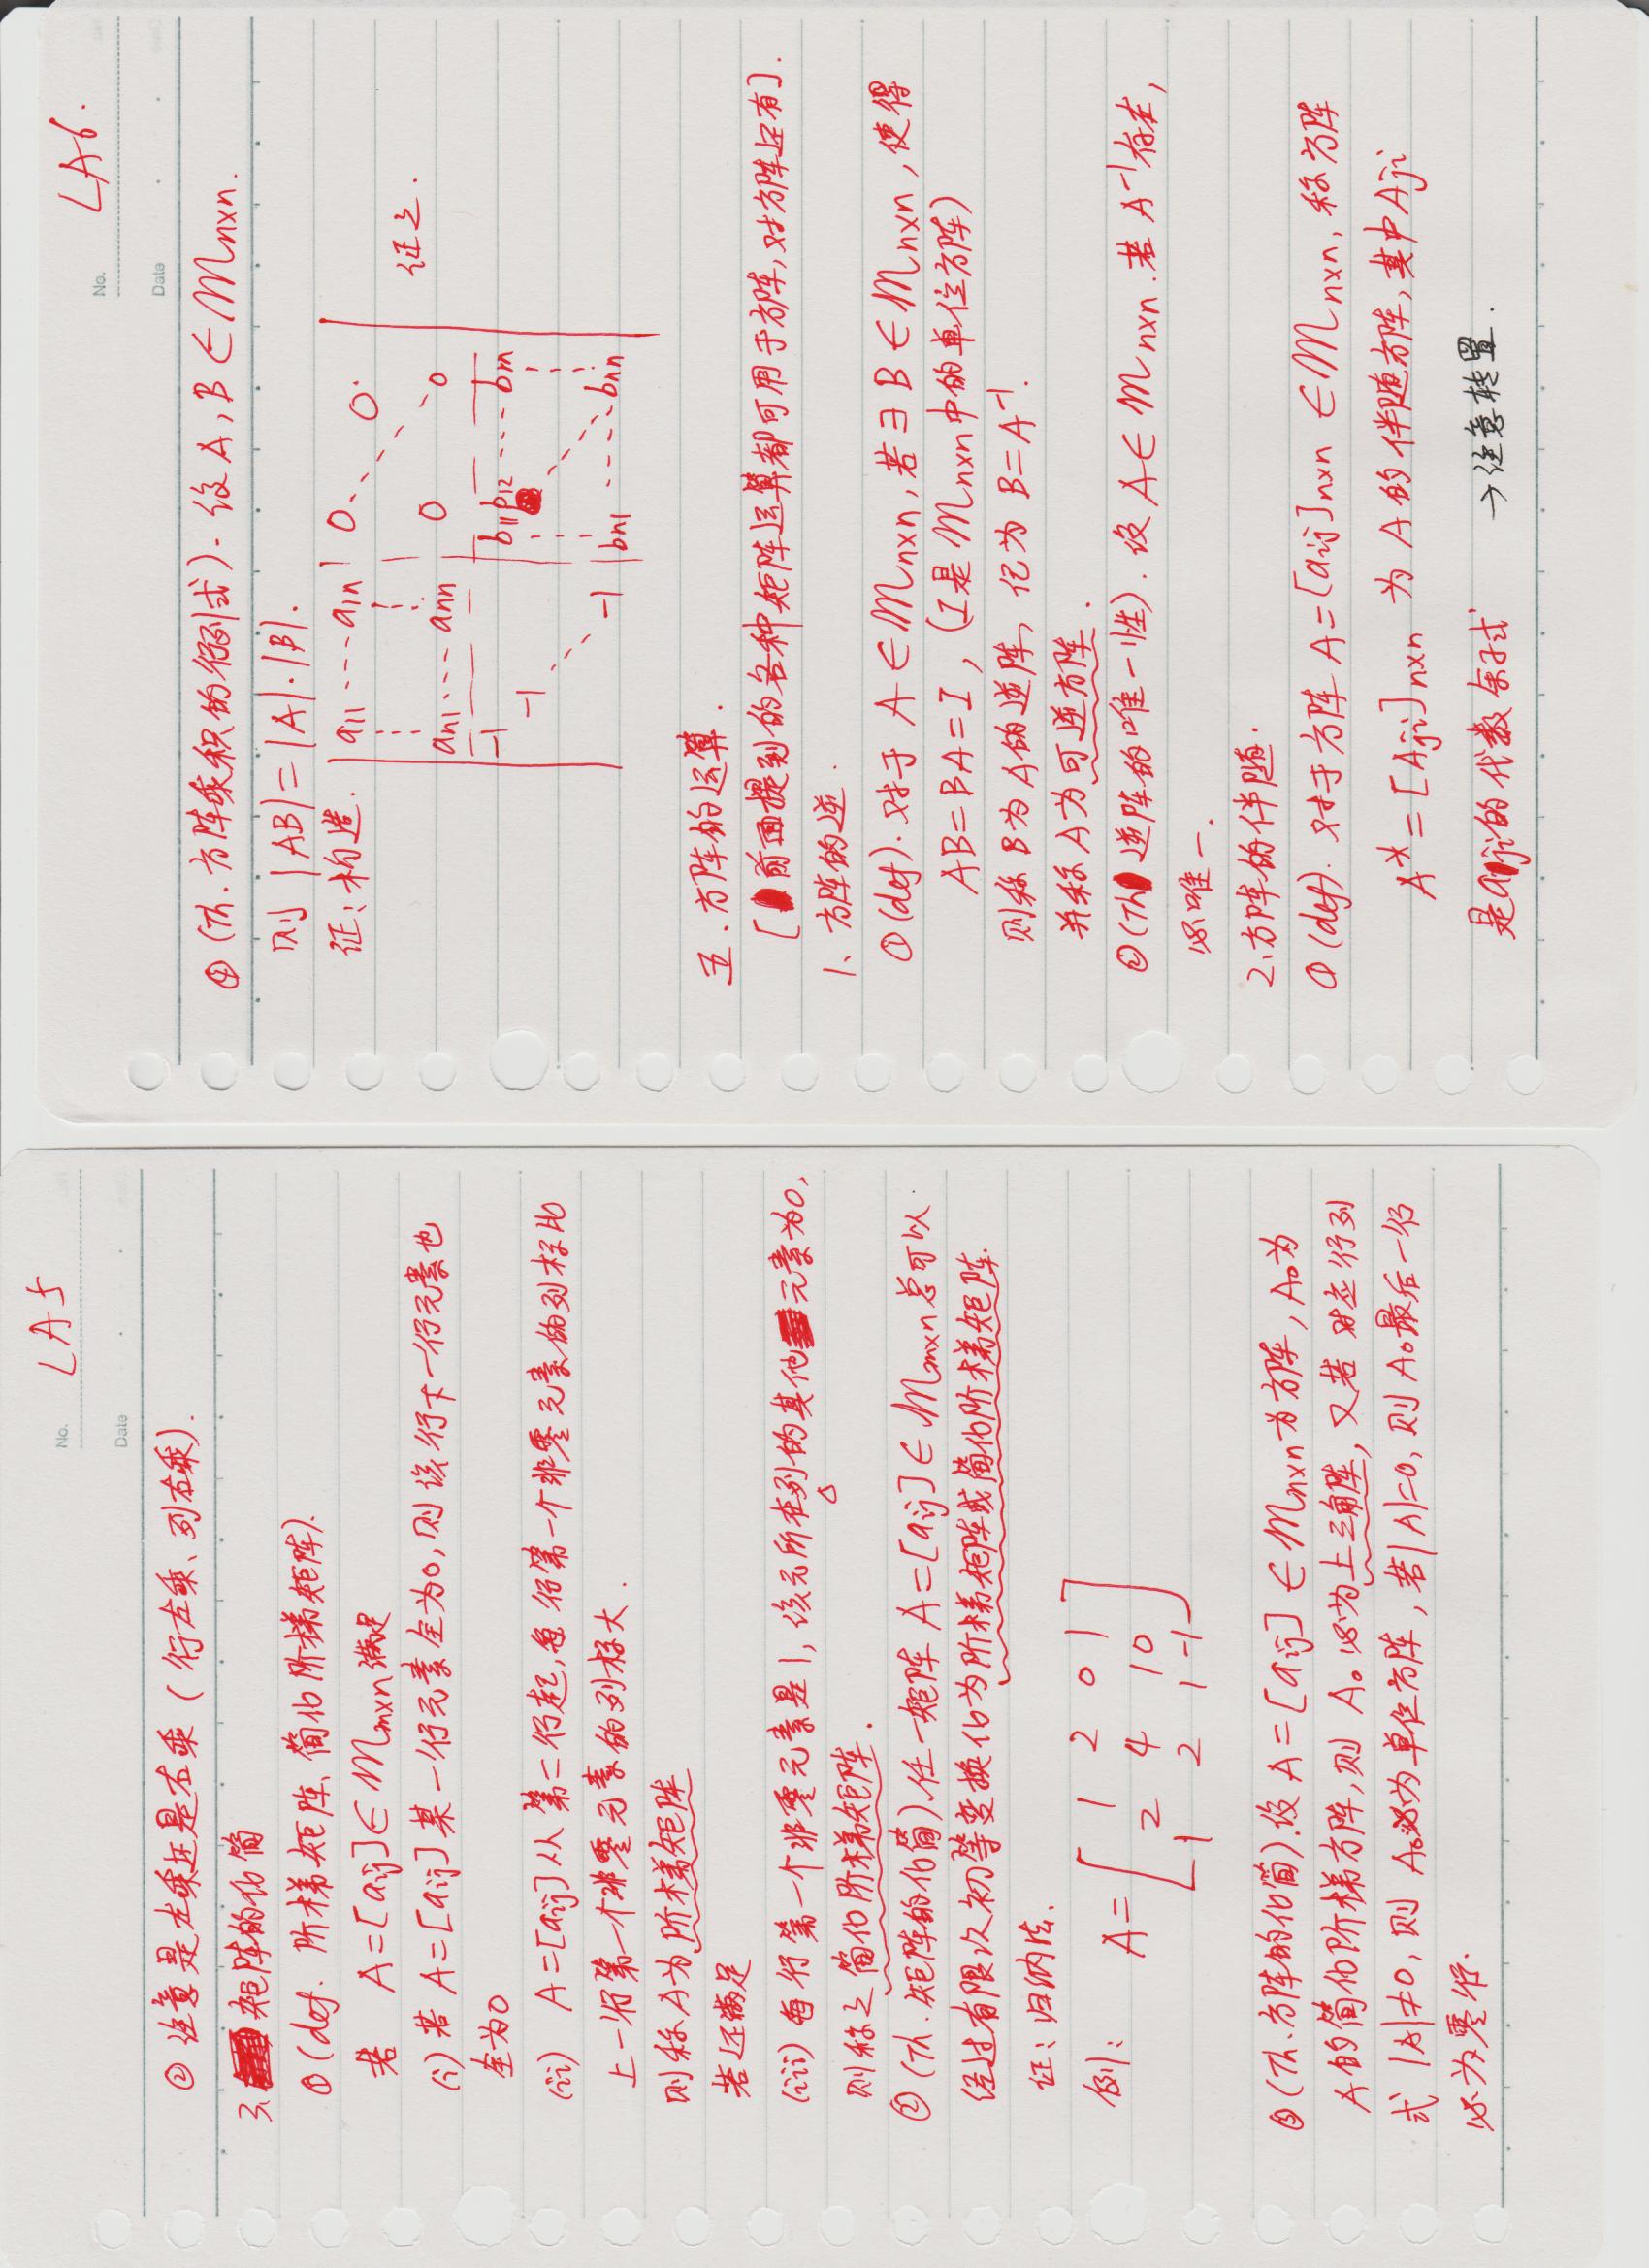 No. LA5
Date
② 注意是左乘还是右乘 (行左乘、列右乘).
3、矩阵的化简
① (def. 阶梯矩阵、简化阶梯矩阵).
若 A=[aij]∈Mm×n满足
(i) 若 A=[aij] 某一行元素全为0,则该行下一行元素也
全为0
(ii) A=[aij]从第二行起,每行第一个非零元素的列标比
上一行第一个非零元素的列标大.
则称A为阶梯矩阵
若还满足
(iii) 每行第一个非零元素是1,该元所在列的其他元素为0,
则称之简化阶梯矩阵.
② (Th. 矩阵的化简).任一矩阵 A=[aij]∈Mm×n总可以
经过有限次初等变换化为阶梯矩阵或简化阶梯矩阵.
证:归纳法.
例: A=[ 1 2 0 1
2 4 1 0
1 2 1 -1 ]
③ (Th.方阵的化简).设A=[aij]∈Mn×n为方阵,A₀为
A的简化阶梯方阵,则 A₀必为上三角阵,又若对应行列
式 |A|≠0,则 A₀必为单位方阵,若|A|=0,则A₀最后一行
必为零行.
No. LA6.
Date
④ (Th.方阵乘积的行列式). 设A,B∈Mn×n.
则 |AB|=|A|·|B|.
证:构造. | a11 --- a1n | 0 0
an1 --- ann 0 0
-1 b11 b12 --- b1n
-1
-1 bn1 --- bnn | 证之.
五.方阵的运算.
[前面提到的各种矩阵运算都可用于方阵,对方阵还有].
1、方阵的逆.
① (def). 对于 A∈Mn×n,若∃B∈Mn×n,使得
AB=BA=I, (I是Mn×n中的单位方阵)
则称B为A的逆阵,记为 B=A⁻¹.
并称A为可逆方阵.
② (Th 逆阵的唯一性). 设A∈Mn×n.若A⁻¹存在,
必唯一.
2、方阵的伴随.
① (def). 对于方阵 A=[aij]n×n∈Mn×n,称方阵
A*=[Aji]n×n 为A的伴随方阵,其中Aji
是aji的代数余子式 →注意转置.